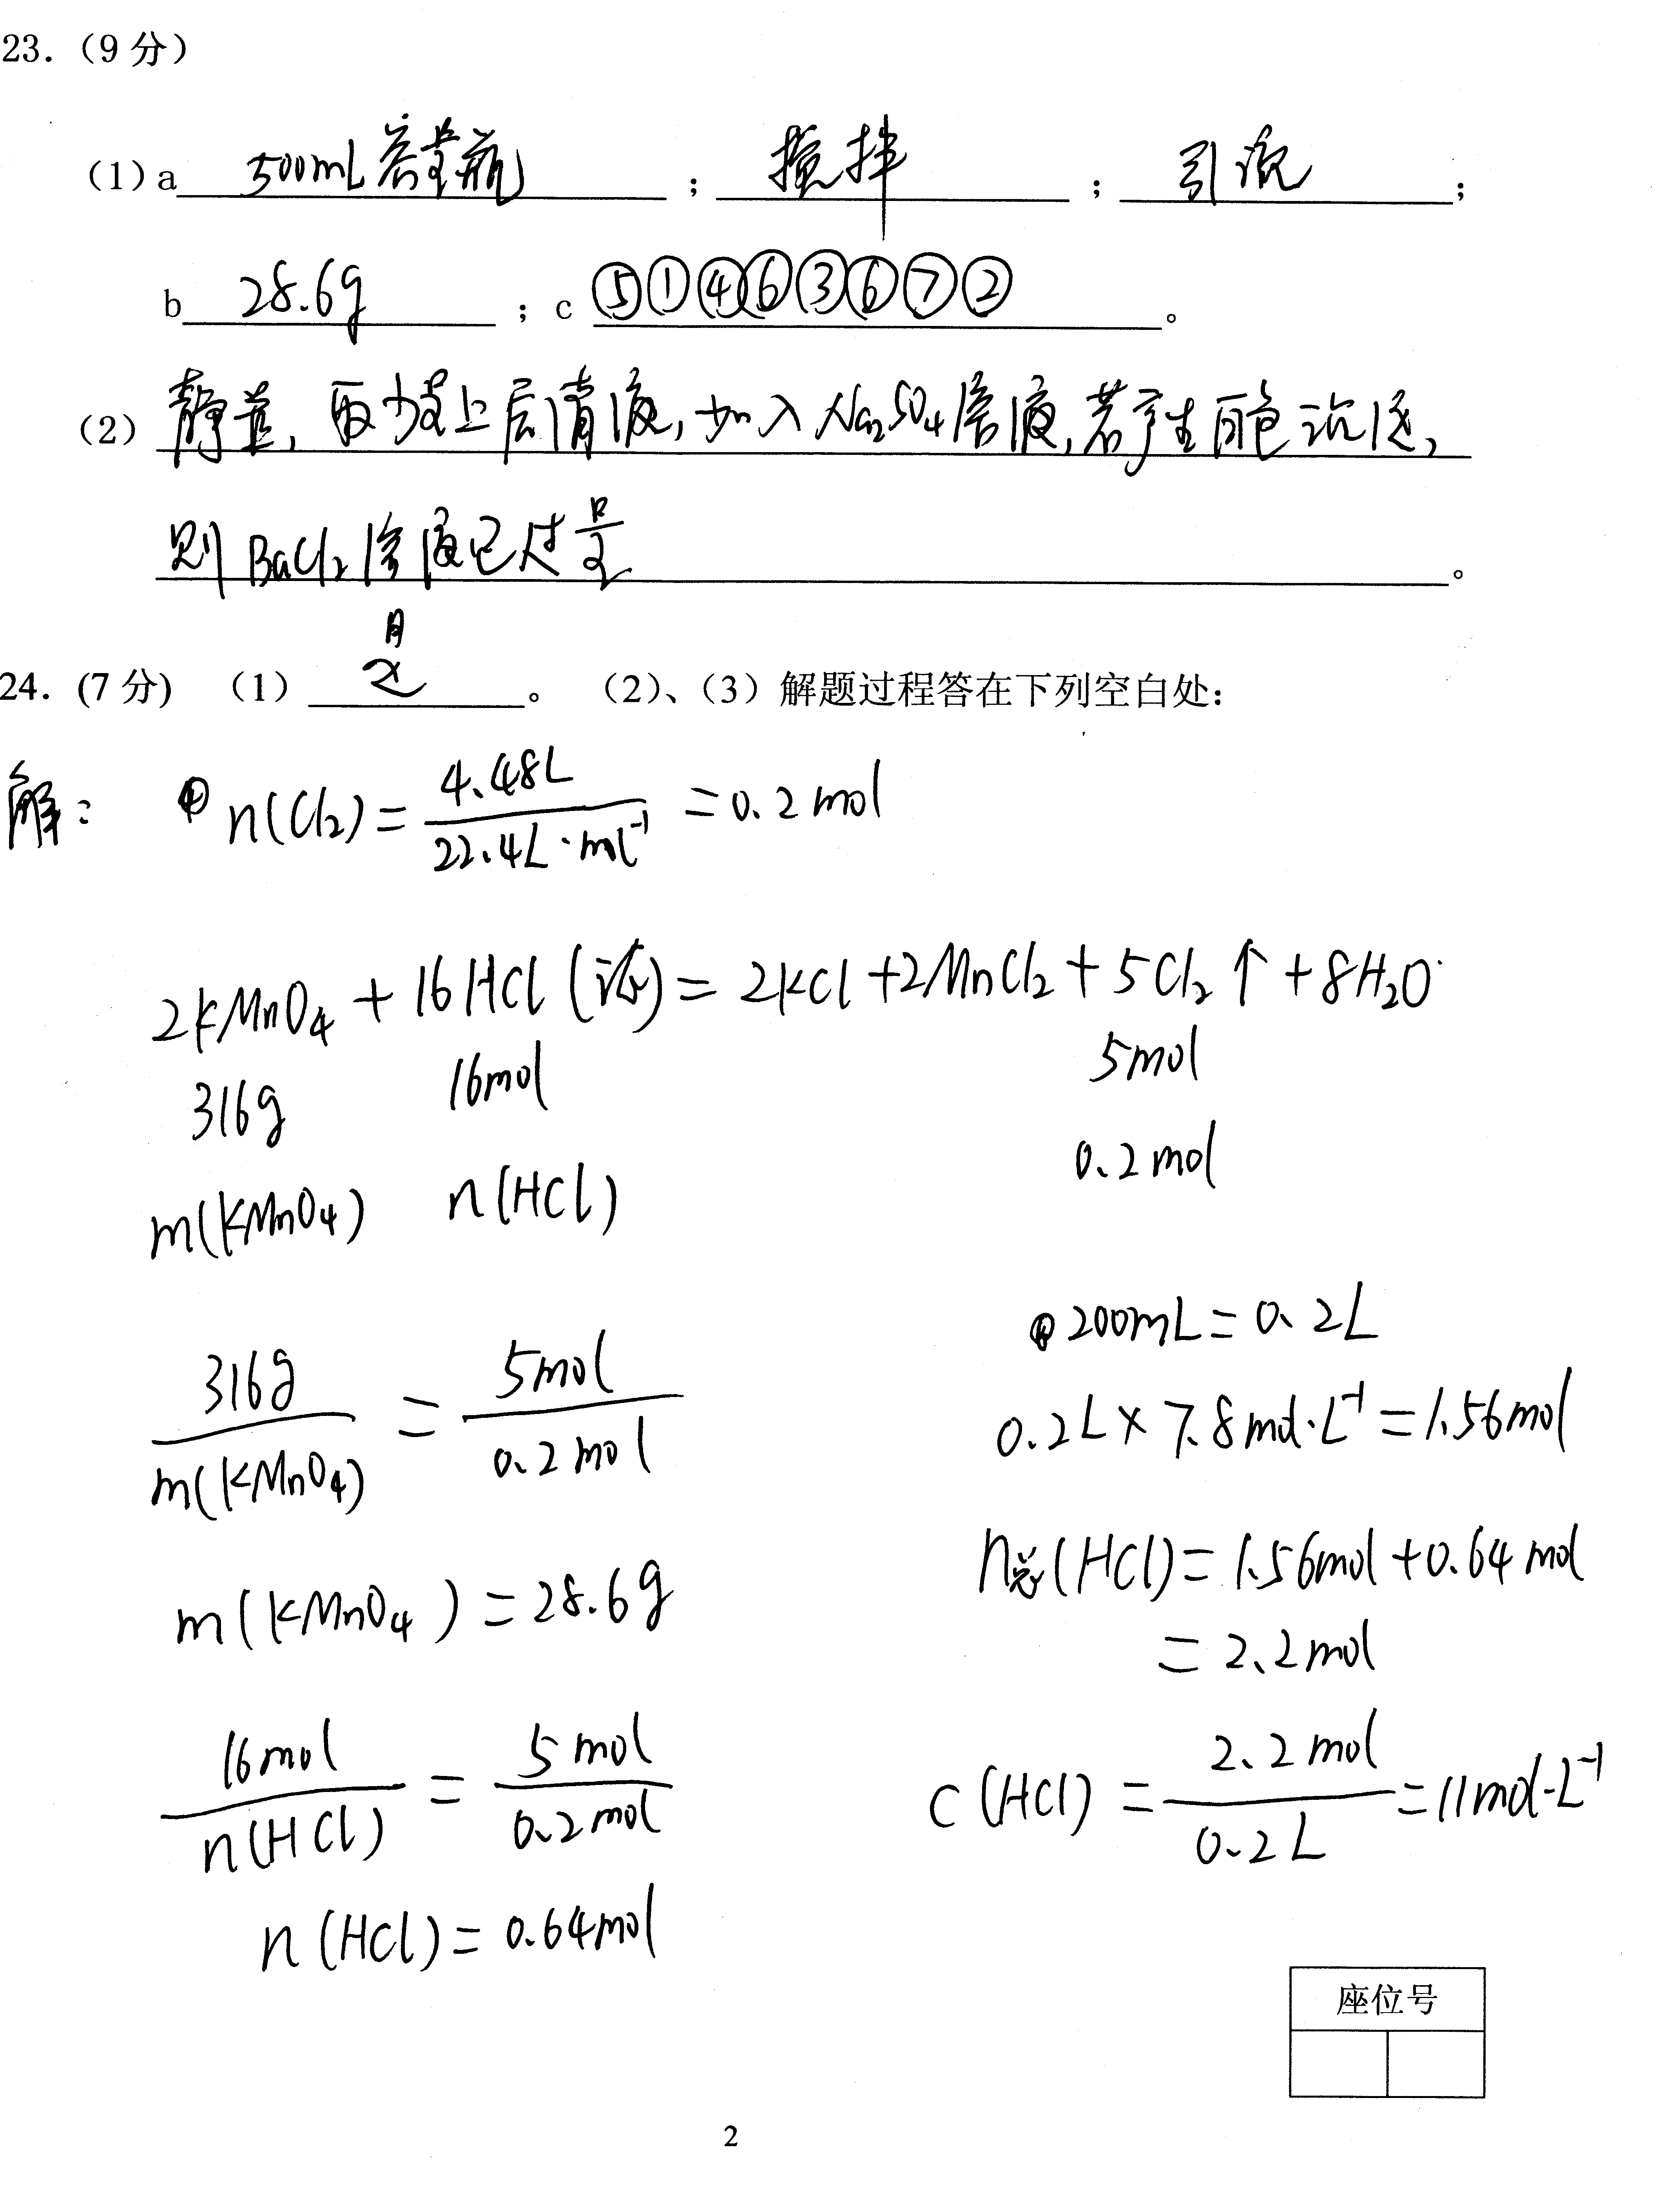 23.（9 分）
（1）a 500mL容量瓶 ； 搅拌 ； 引流 ；
b 28.6g ；c ⑤①④⑥③⑥⑦②。
（2）静置，取少量上层清液，加入Na₂SO₄溶液，若产生白色沉淀，
则BaCl₂溶液已过量。
24.(7 分) （1） 。 （2）、（3）解题过程答在下列空白处：
解： ① n(Cl₂) = 4.48L / 22.4L·mol⁻¹ = 0.2mol
2KMnO₄ + 16HCl (浓) = 2KCl + 2MnCl₂ + 5Cl₂↑ + 8H₂O
316g 16mol 5mol
m(KMnO₄) n(HCl) 0.2mol
316g / m(KMnO₄) = 5mol / 0.2mol
m(KMnO₄) = 28.6g
16mol / n(HCl) = 5mol / 0.2mol
n(HCl) = 0.64mol
200mL = 0.2L
0.2L × 7.8mol·L⁻¹ = 1.56mol
n总(HCl) = 1.56mol + 0.64mol
= 2.2mol
c(HCl) = 2.2mol / 0.2L = 11mol·L⁻¹
座位号
2